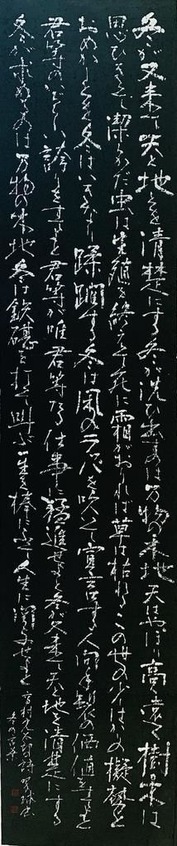 冬が又来て天と地とを清楚にする冬が洗ひ出すのは万物の木地天はやつぱり高く遠く樹木は
思ひきつて潔らかだ虫は生殖を終へて死に霜がおりれば草は枯れるこの世の少しばかりの擬勢と
おめかしとを冬はいきなり蹂躙する冬は凩の喇叭を吹いて宣言する人間手製の価値をすてよと
君等のいぢらしい誇りをすてよ君等が唯君等たる仕事に猛進せよと冬が又来て天と地とを清楚にする
冬が求めるのは万物の木地冬は鉄碪を打つて叫ぶ一生を棒にふつて人生に関与せよと 高村光太郎詩